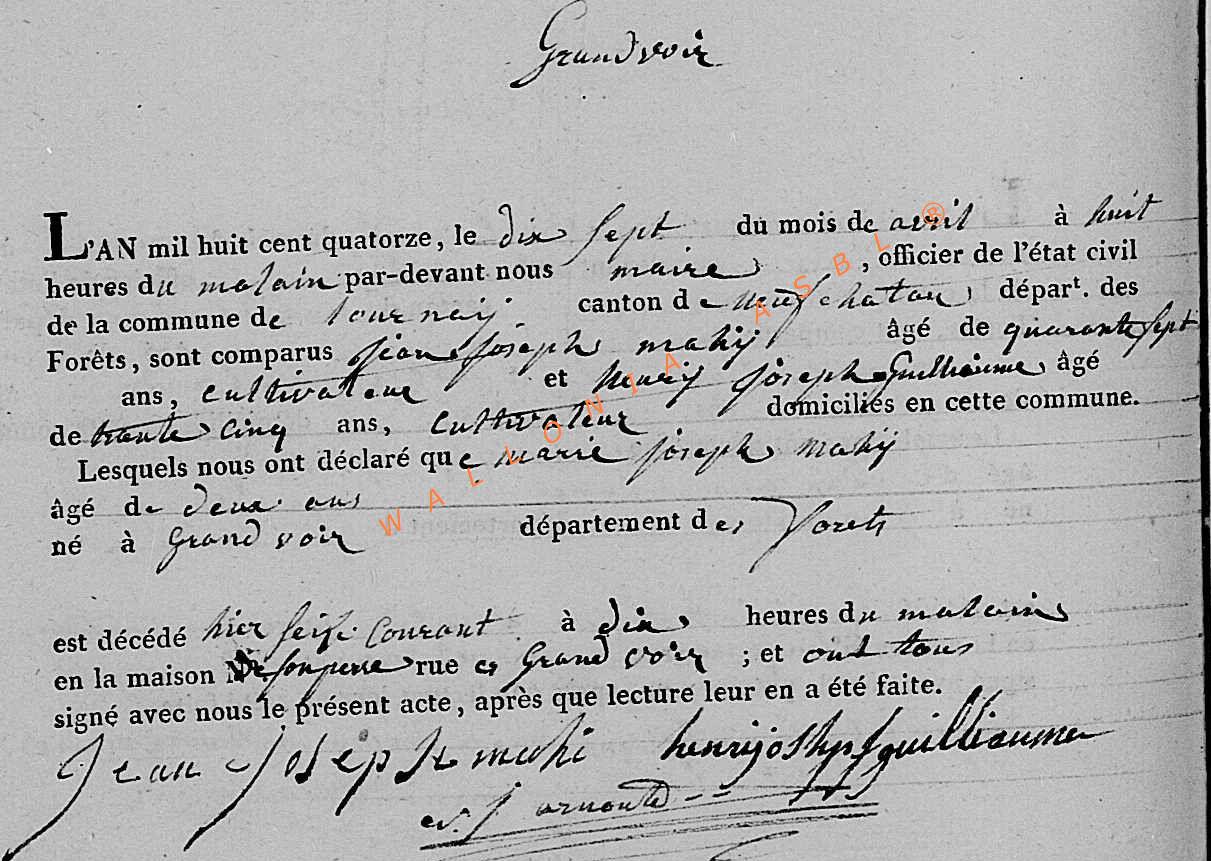 Grandvoir
L'AN mil huit cent quatorze, le dix sept du mois de avril à huit
heures du matain par-devant nous maire , officier de l'état civil
de la commune de tournay canton de neufchatau, départ. des
Forêts, sont comparus jean joseph mahy âgé de quarante sept
ans, cultivateur et henrij joseph Guilliaume âgé
de trante cinq ans, cultivateur domiciliés en cette commune.
Lesquels nous ont déclaré que marie joseph mahij
âgé de deux ans
né à Grand voir département des Forets
est décédé hier seise Courant à dix heures du matain
en la maison de son pere rue es Grand voir ; et ont tous
signé avec nous le présent acte, après que lecture leur en a été faite.
Jean Joseph mahi henrij guilliaume
arnould
WALLONIA ASBL ®